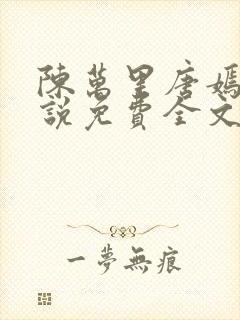 陳萬里唐嫣
說免費全文
一夢無痕